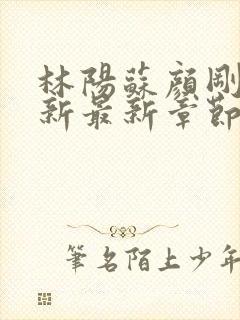 林陽蘇顏剛
新最新章節
筆名陌上少年